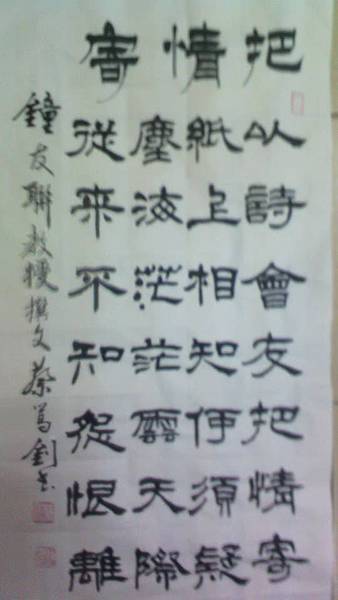 把情寄
以詩會友把情寄
紙上相知何須疑
塵海茫茫雲天際
從來不知怨恨離
鐘友聯教授撰文 蔡釗書